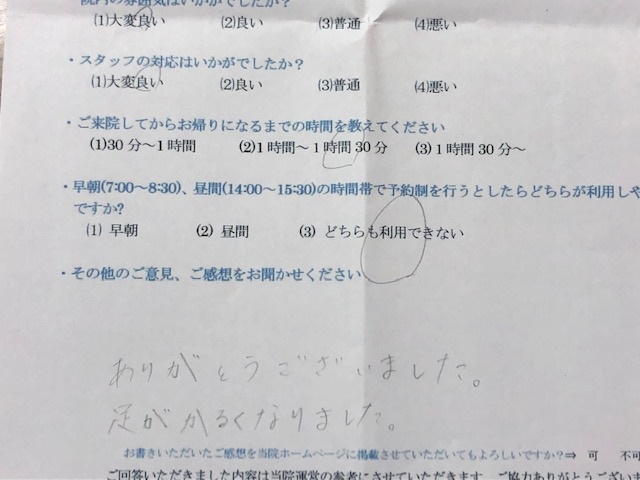 院内の雰囲気はいかがでしたか？
(1)大変良い (2)良い (3)普通 (4)悪い
・スタッフの対応はいかがでしたか？
(1)大変良い (2)良い (3)普通 (4)悪い
・ご来院してからお帰りになるまでの時間を教えてください
(1)30分～1時間 (2)1時間～1時間30分 (3)1時間30分～
・早朝(7:00～8:30)、昼間(14:00～15:30)の時間帯で予約制を行うとしたらどちらが利用しや
ですか?
(1) 早朝 (2) 昼間 (3) どちらも利用できない
・その他のご意見、ご感想をお聞かせください
ありがとうございました。
足がかるくなりました。
お書きいただいたご感想を当院ホームページに掲載させていただいてもよろしいですか？⇒ 可 不可
ご回答いただきました内容は当院運営の参考にさせていただきます。ご協力ありがとうござい